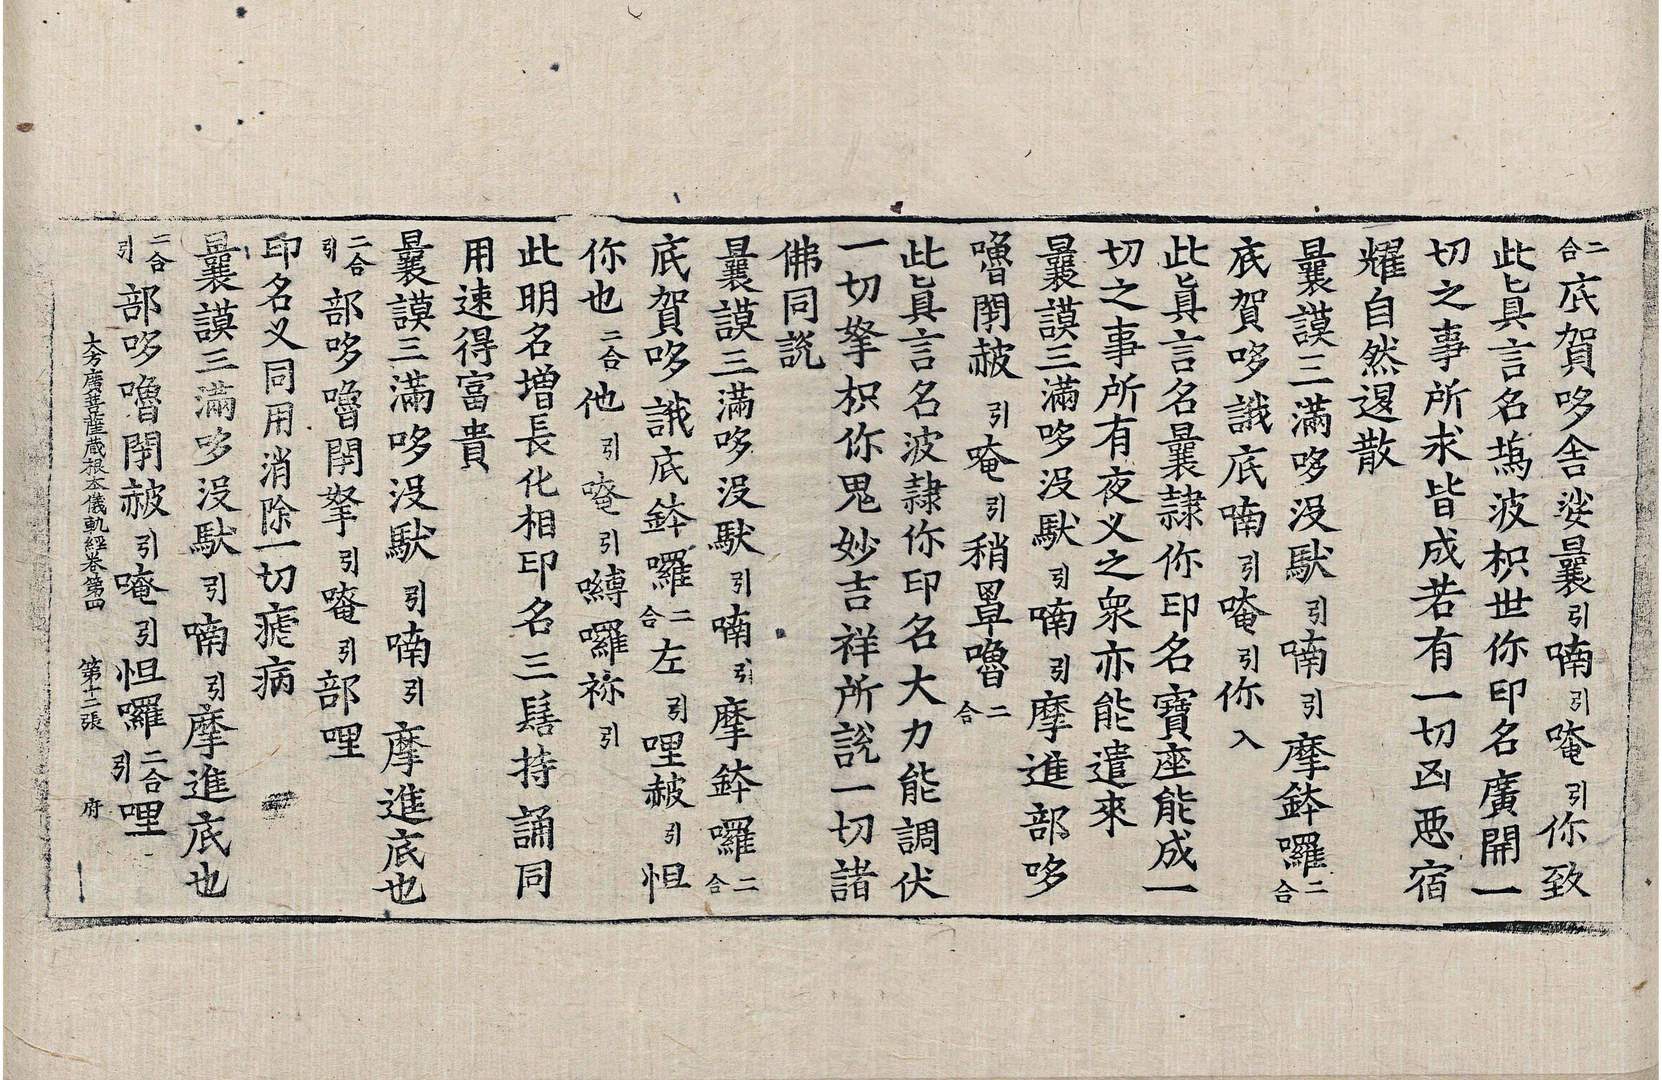 二合底賀哆舍娑曩引喃引唵引你致
此真言名鴣波枳世你印名廣開一
切之事所求皆成若有一切凶惡宿
耀自然退散
曩謨三滿哆没馱引喃引摩鉢囉二合
底賀哆誐底喃引唵引你入
此真言名曩隷你印名寶座能成一
切之事所有夜义之衆亦能遣來
曩謨三滿哆没馱引喃引摩進部哆
嚕閉赧引唵引稍覃嚕二合
此真言名波隷你印名大力能調伏
一切拏枳你鬼妙吉祥所說一切諸
佛同說
曩謨三滿哆没馱引喃引摩鉢囉二合
底賀哆誐底鉢囉二合左引哩赧引怛
你也二合他引唵引嚩囉祢引
此明名增長化相印名三髻持誦同
用速得富貴
曩謨三滿哆没馱引喃引摩進底也
二合引部哆嚕閉拏引唵引部哩
印名义同用消除一切瘧病
曩謨三滿哆没馱引喃引摩進底也
二合引部哆嚕閉赧引唵引怛囉二合引哩
大方廣菩薩藏根本儀軌經卷第四 第十二張 府